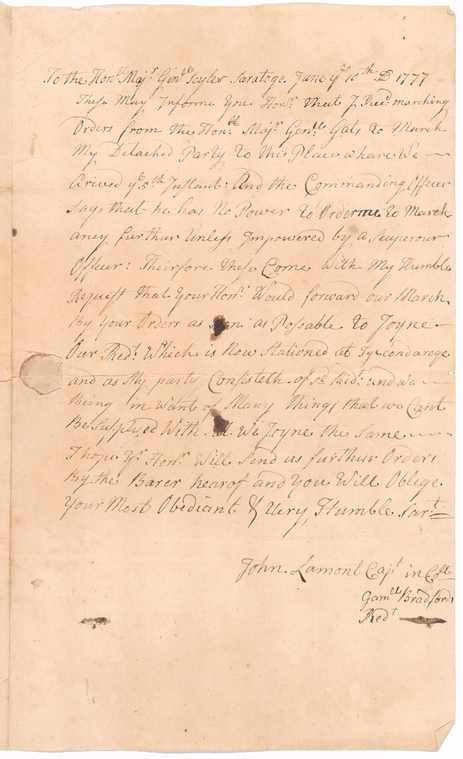 To the Honbl Majr Genrl Scyler Saratoge June ye 10th D 1777
These May Informe You Honr. that I Recd. marching
Orders from the Honble Majr Genrl Gats to March
My Detached Party to this Place whare We
Arived ye 5th Instant: And the Commanding Officer
Says that he has No Power to Order me to March
aney furthur Unless Impowered by a Superour
Officer: Theirfore these Come with My Humble
Request that Your Honr. Would forward our March
by Your Orders as Soon as Possable to Joyne
Our Redt. Which is Now Stationed at Tyconderoge
and as My party Consisteth of sd Kid: and we
Being in Want of Many Things that we Cant
Be Suplyed With till We Joyne the Same
I hope Yr. Honr. Will Send us furthur Orders
By the Barer hearof and You Will Oblege
Your Most Obediant & Very Humble Sart.
John Lamont Capt in Coll
Gamll Bradfords
Redt